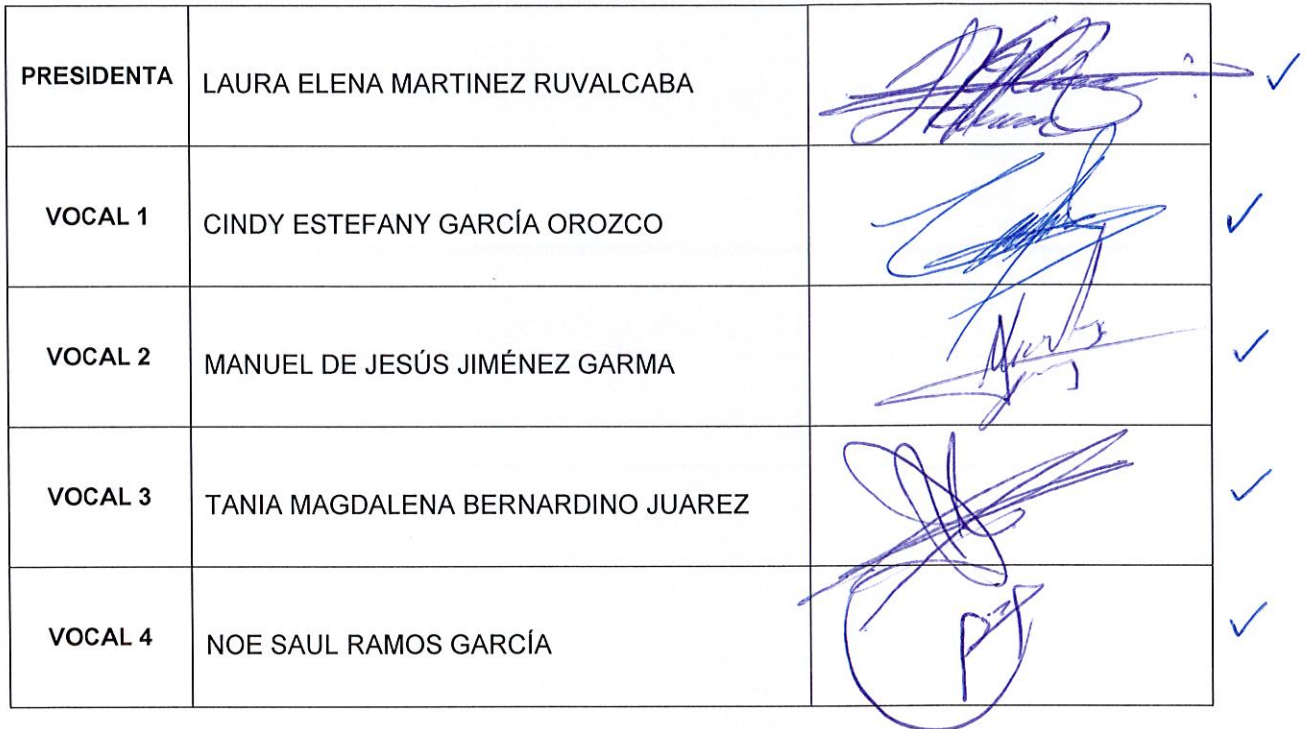 PRESIDENTA LAURA ELENA MARTINEZ RUVALCABA
VOCAL 1 CINDY ESTEFANY GARCÍA OROZCO
VOCAL 2 MANUEL DE JESÚS JIMÉNEZ GARMA
VOCAL 3 TANIA MAGDALENA BERNARDINO JUAREZ
VOCAL 4 NOE SAUL RAMOS GARCÍA